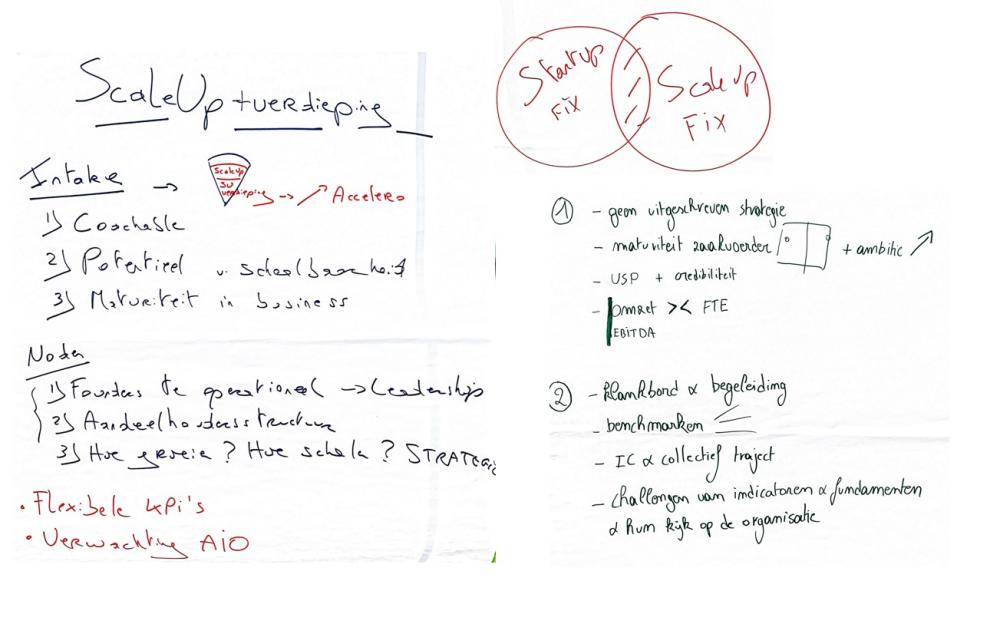 ScaleUp + verdieping
Intake →
ScaleUp
SU
verdieping → ↗ Accelero
1) Coachable
2) Potentieel v. schaalbaarheid
3) Maturiteit in business
Noden
1) Founders te operationeel → Leadership
2) Aandeelhoudersstructuur
3) Hoe groeien? Hoe schalen? STRATEGIE
• Flexibele KPi's
• Verwachting AIO
Startup
FiX
Scaleup
FiX
1 - geen uitgeschreven strategie
- maturiteit zaakvoerder + ambitie ↗
- USP + credibiliteit
- omzet >< FTE
EBITDA
2 - klankbord & begeleiding
- benchmarken
- IC & collectief traject
- challengen van indicatoren & fundamenten
& hun kijk op de organisatie